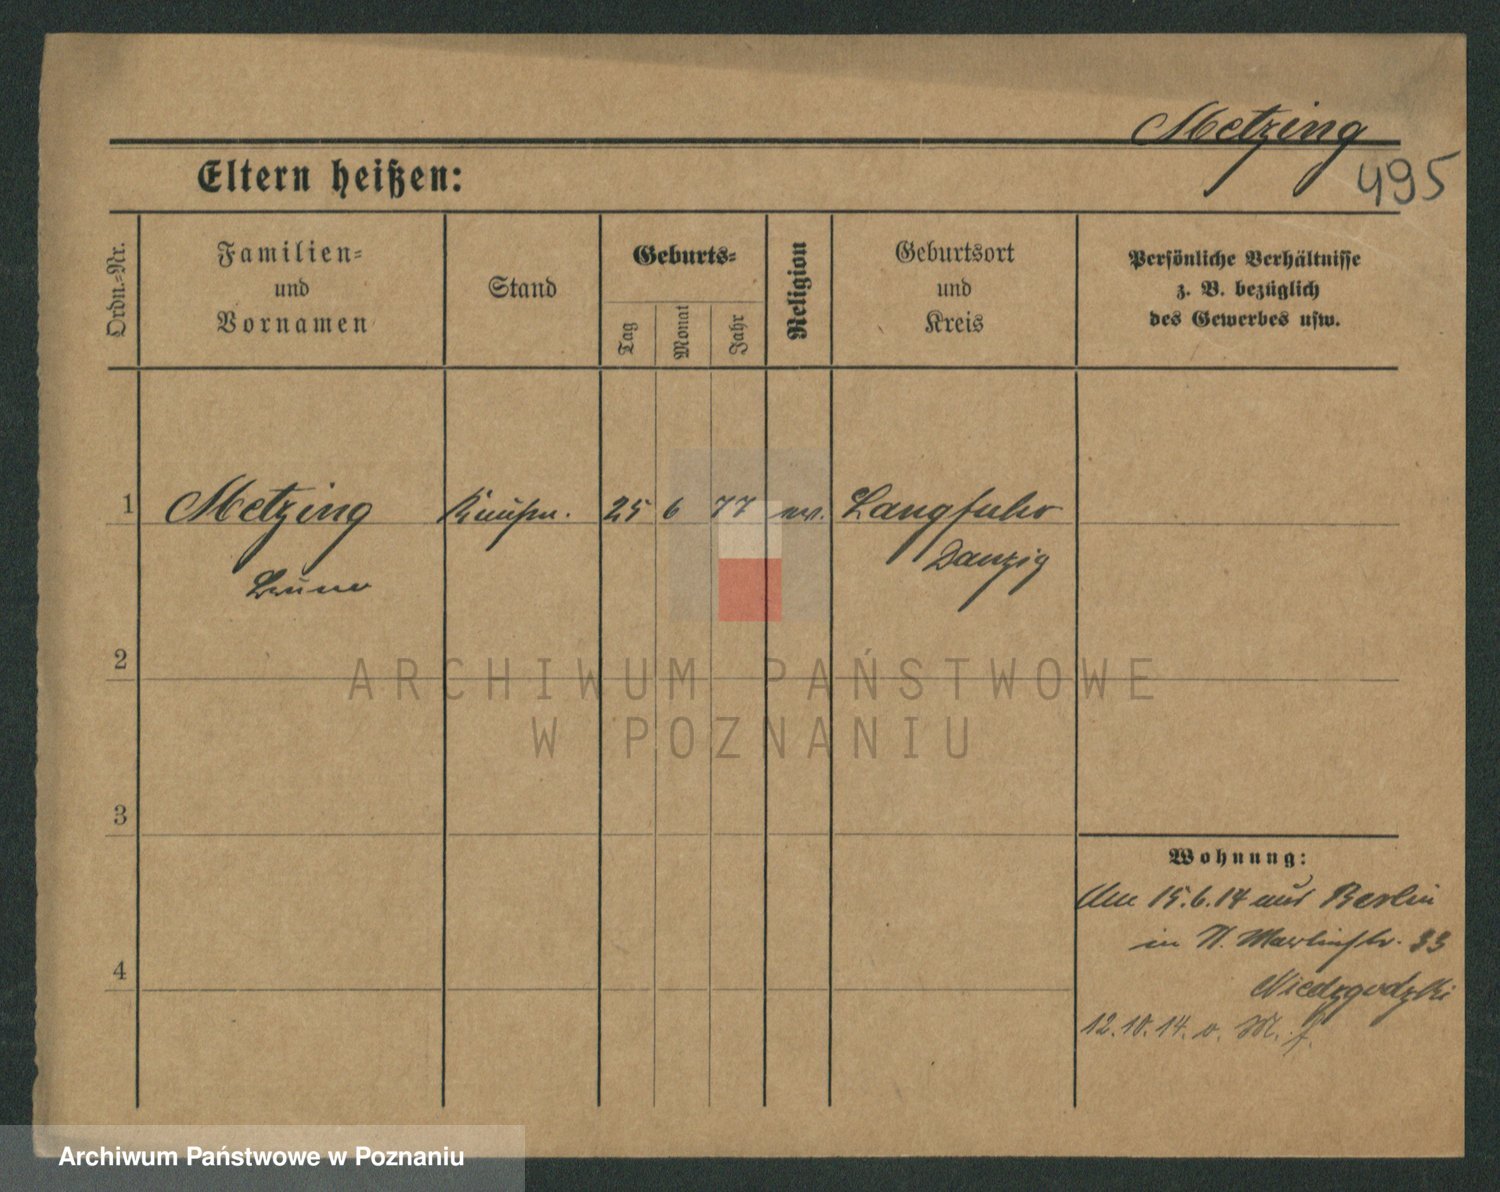 Metzing
495
Eltern heißen:
Ordn.-Nr.
Familien-
und
Vornamen
Stand
Geburts-
Tag
Monat
Jahr
Religion
Geburtsort
und
Kreis
Persönliche Verhältnisse
z. B. bezüglich
des Gewerbes usw.
1
Metzing
Kaufm.
25
6
77
ev.
Langfuhr
Bruno
Danzig
2
ARCHIWUM PAŃSTWOWE
W POZNANIU
3
4
Wohnung:
Am 15.6.14 aus Berlin
in N. Martinstr. 33
Niedzgodzki
12.10.14. v. M. f.
Archiwum Państwowe w Poznaniu